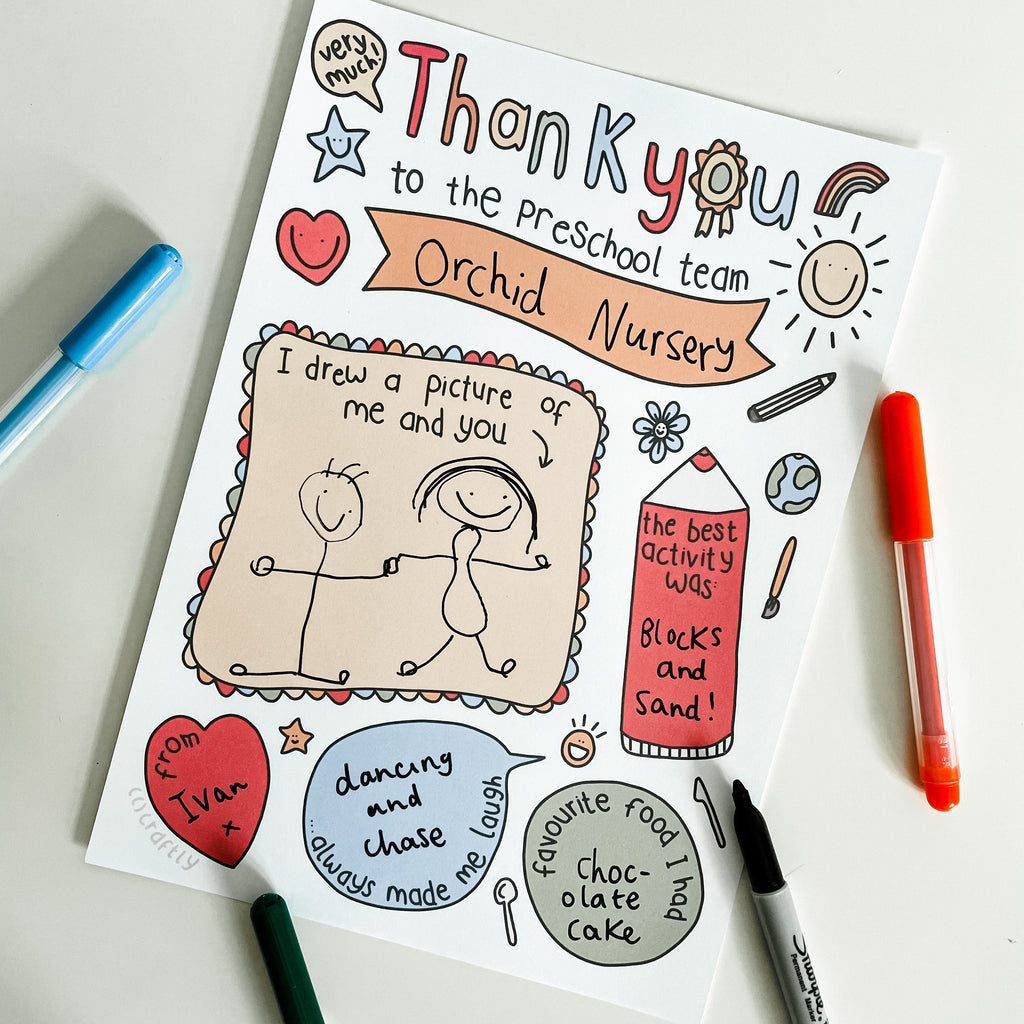 very
much!
Thank you
to the preschool team
Orchid Nursery
I drew a picture of
me and you
the best
activity
was:
Blocks
and
Sand!
from
Ivan
x
(c)craftly
dancing
and
chase
...always made me laugh
favourite food I had
Choc-
olate
cake
Sharpie
Permanent Marker